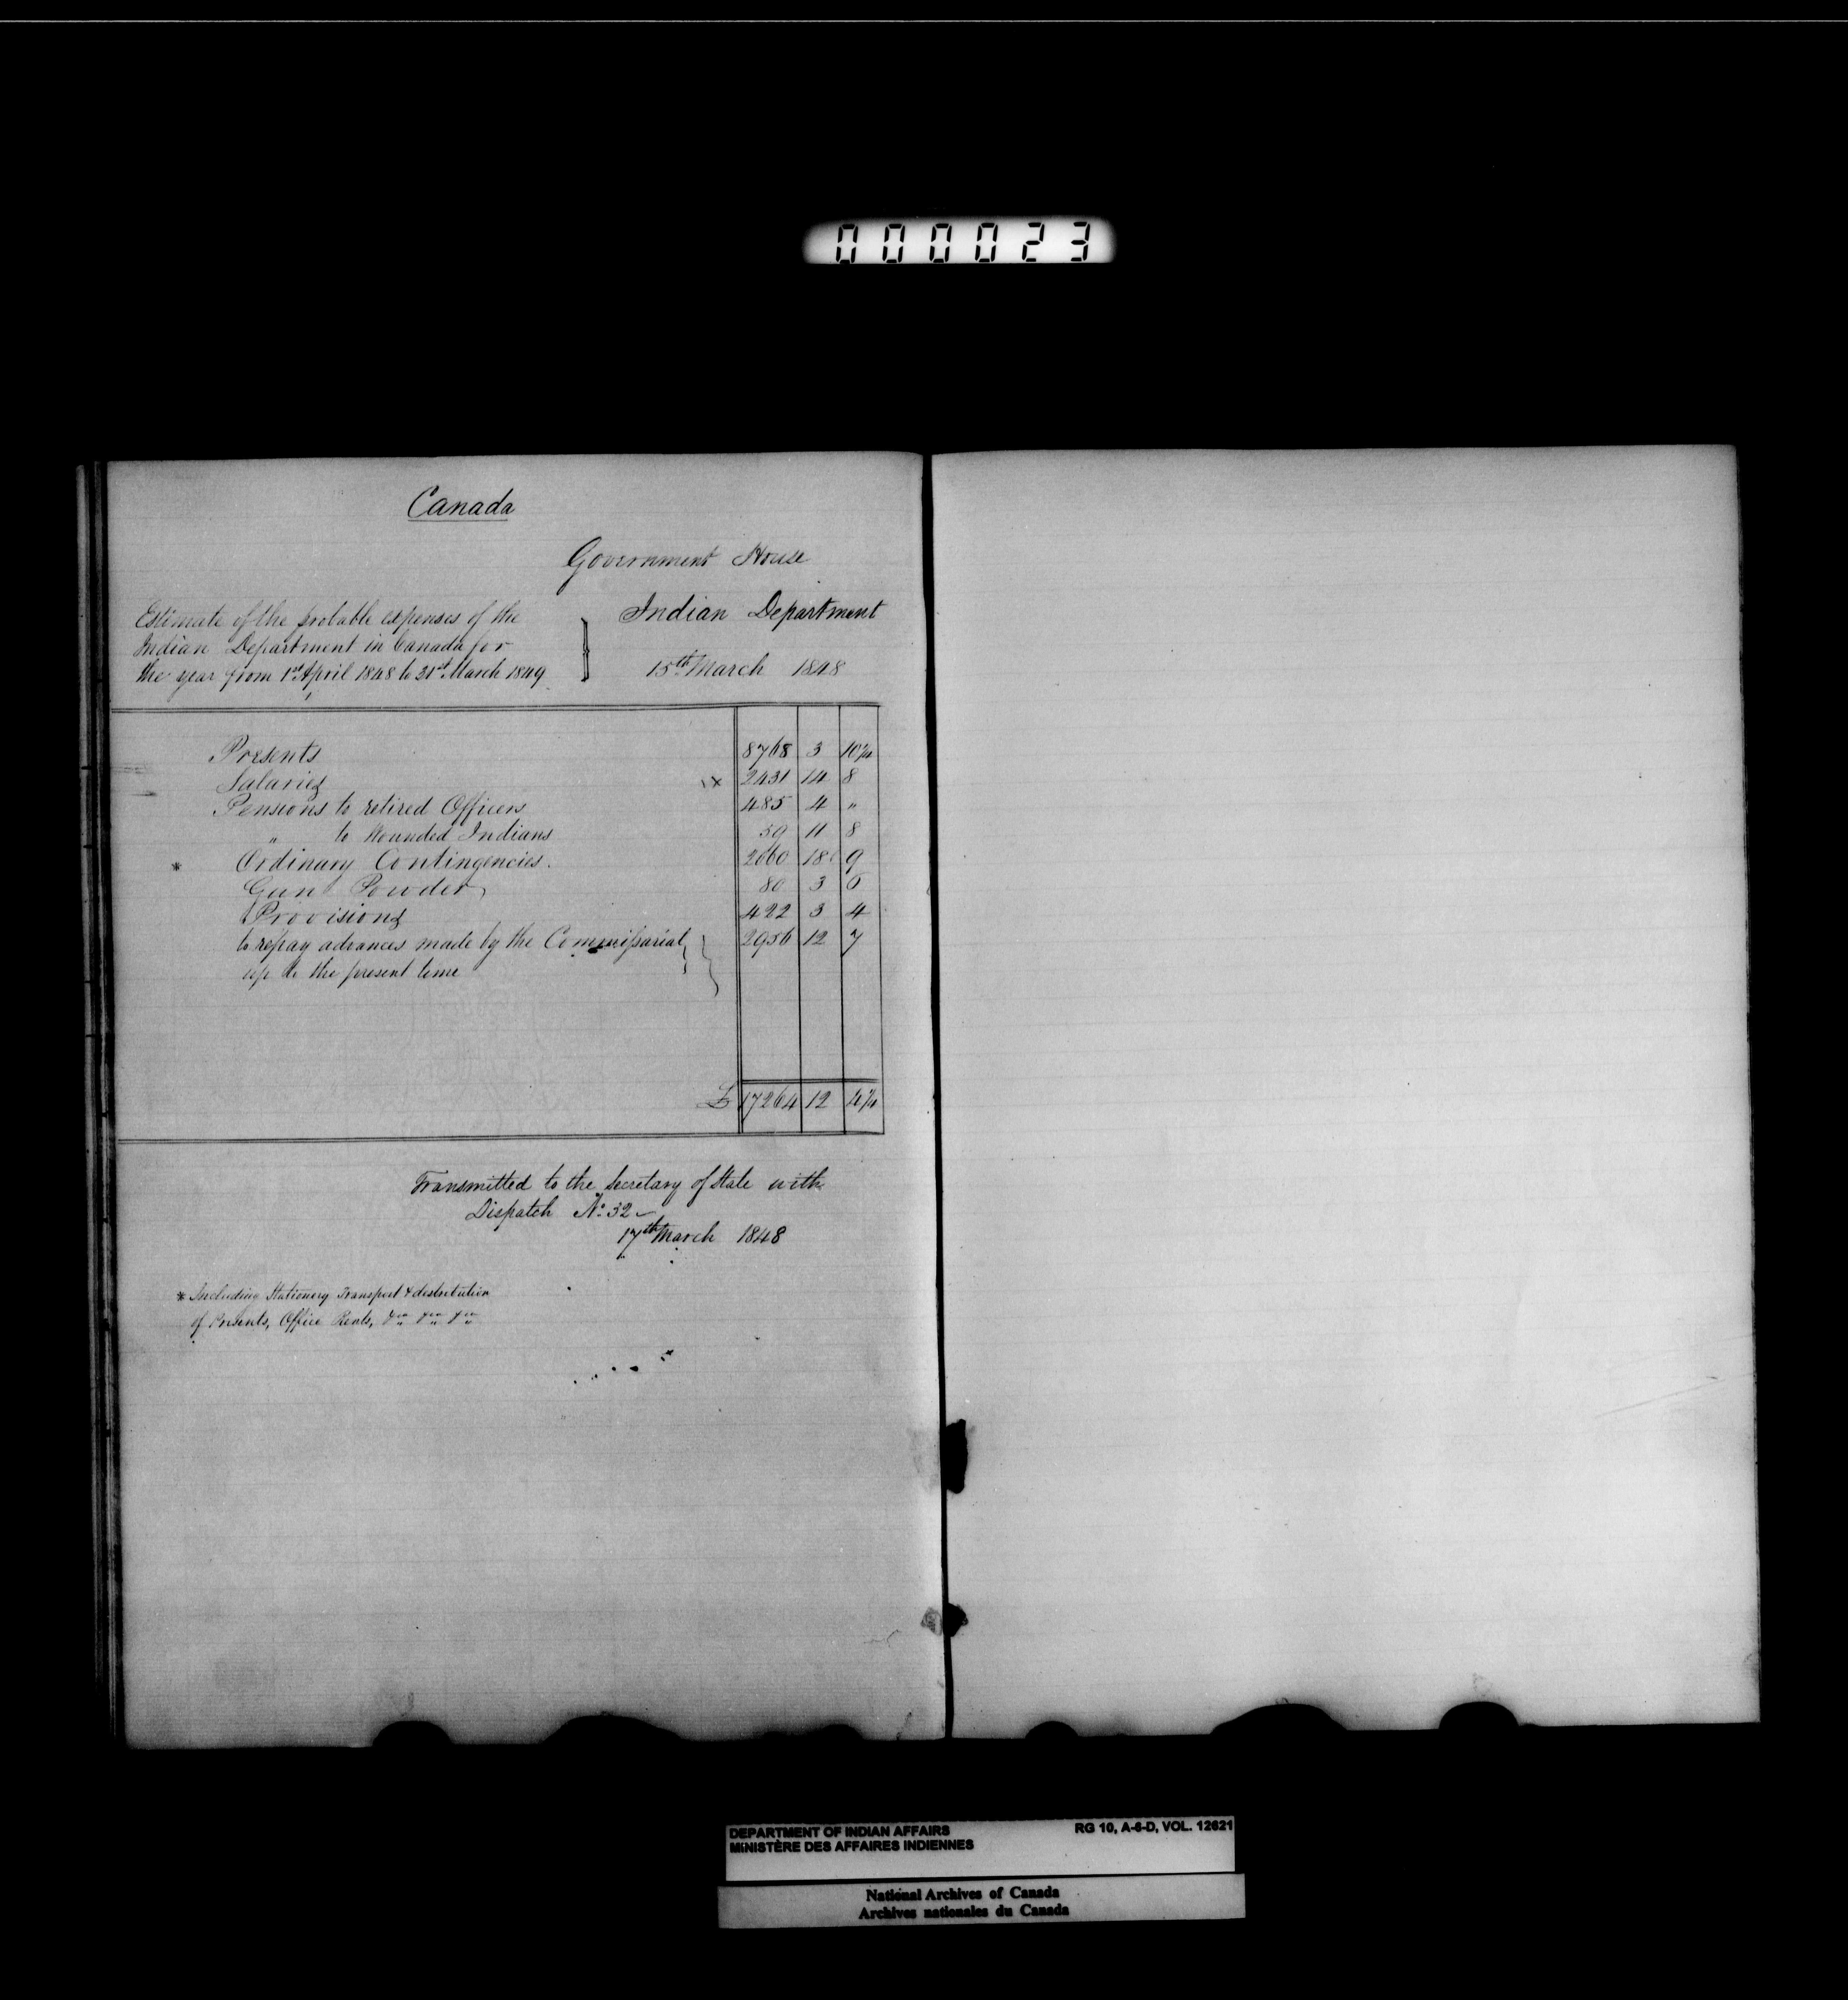 000023
Canada
Government House
Indian Department
15th March 1848
Estimate of the probable expenses of the
Indian Department in Canada for
the year from 1st April 1848 to 31st March 1849
Presents 8768 3 10¼
Salaries 2431 14 8
Pensions to retired Officers 485 4 "
" to Wounded Indians 59 11 8
* Ordinary Contingencies. 2060 18 9
Gun Powder 80 3 6
Provisions 422 3 4
to repay advances made by the Commissariat 2956 12 7
up to the present time
£ 17264 12 4¼
Transmitted to the Secretary of State with
Dispatch No. 32
17th March 1848
* Including Stationery Transport & distribution
of Presents, Office Rents, &ca &ca &ca
DEPARTMENT OF INDIAN AFFAIRS RG 10, A-6-D, VOL. 12621
MINISTÈRE DES AFFAIRES INDIENNES
National Archives of Canada
Archives nationales du Canada